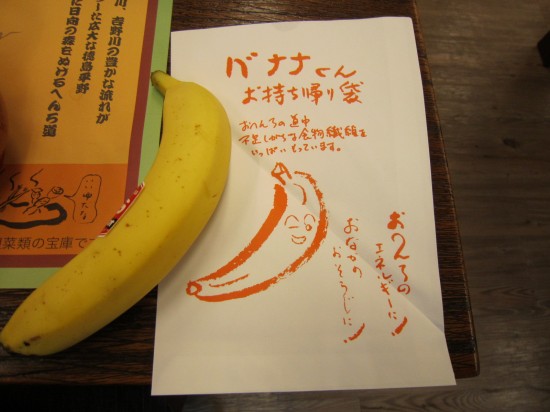 バナナくん
お持ち帰り袋
おへんろの道中
不足しがちな食物繊維を
いっぱいもっています。
おへんろの
エネルギーに!
おなかの
おそうじに!
川、吉野川の豊かな流れが
に広大な徳島平野
に日向の森をぬけるへんろ道
いい湯だな
菜類の宝庫で